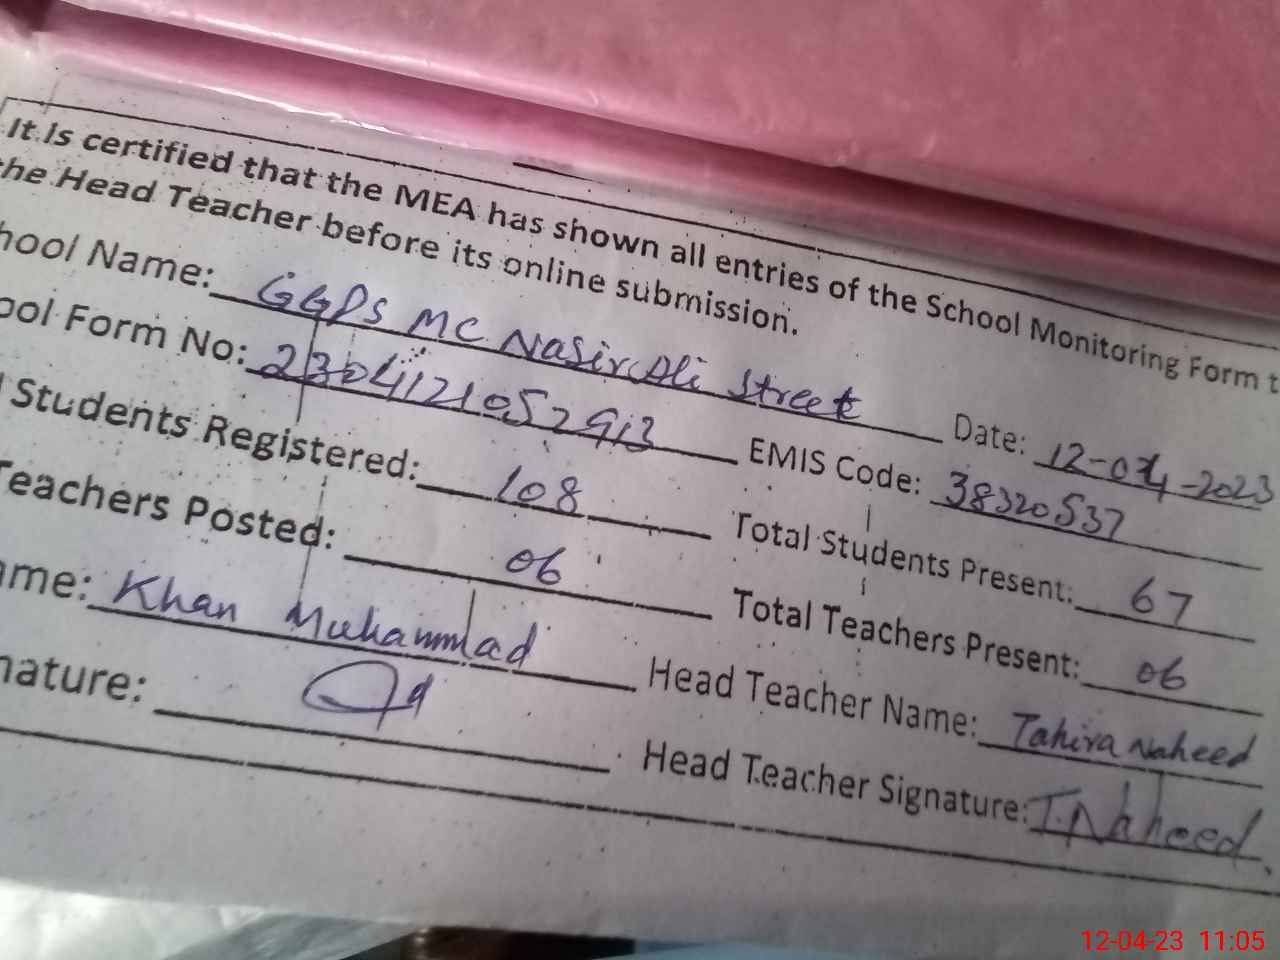 It Is certified that the MEA has shown all entries of the School Monitoring Form t
the Head Teacher before its online submission.
hool Name: GGPS MC Nasir Ali Street Date: 12-04-2023
ool Form No: 2304121052913 EMIS Code: 38320537
l Students Registered: 108 Total Students Present: 67
Teachers Posted: 06 Total Teachers Present: 06
ame: Khan Muhammad Head Teacher Name: Tahira Naheed
nature: Head Teacher Signature: T.Naheed.
12-04-23 11:05